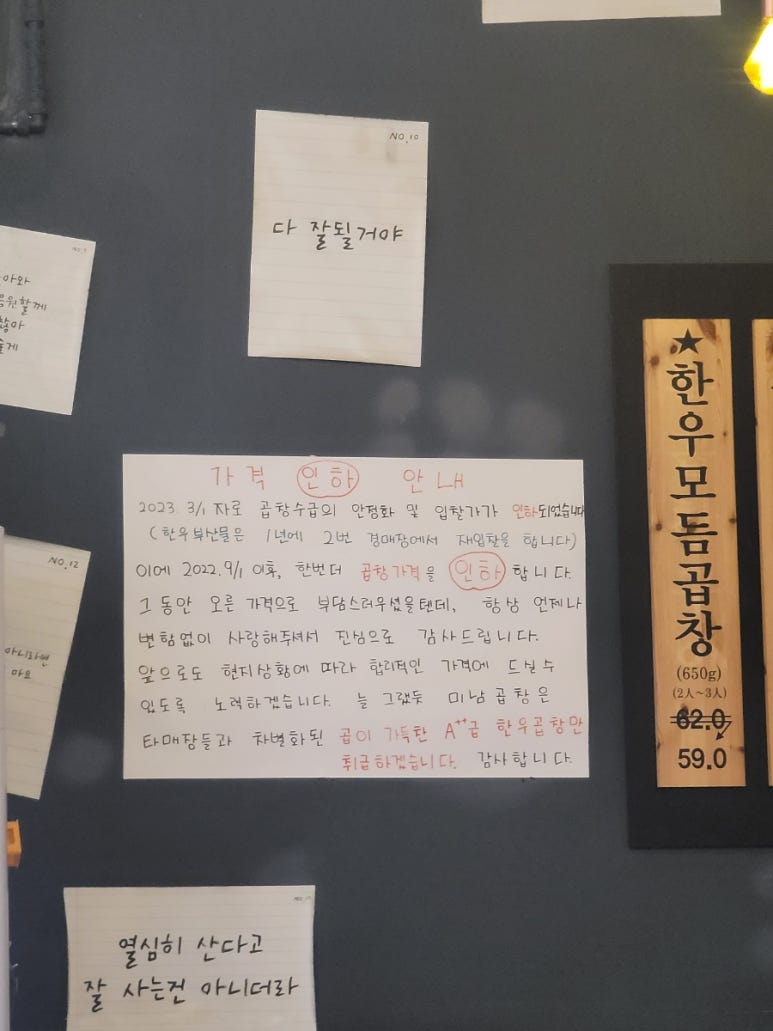 NO.10
다 잘될거야
아와
응원할께
NO.12
아니라면
마요
가격 인하 안내
2023. 3/1 자로 곱창수급의 안정화 및 입찰가가 인하되었습니다
(한우부산물은 1년에 2번 경매장에서 재입찰을 합니다)
이에 2022.9/1 이후, 한번더 곱창가격을 인하 합니다.
그동안 오른 가격으로 부담스러우셨을텐데, 항상 언제나
변함없이 사랑해주셔서 진심으로 감사드립니다.
앞으로도 현지상황에 따라 합리적인 가격에 드실수
있도록 노력하겠습니다. 늘 그랬듯 미남곱창은
타매장들과 차별화된 곱이 가득한 A++급 한우곱창만
취급하겠습니다. 감사합니다.
★한우모듬곱창
(650g)
(2人~3人)
62.0
59.0
열심히 산다고
잘 사는건 아니더라